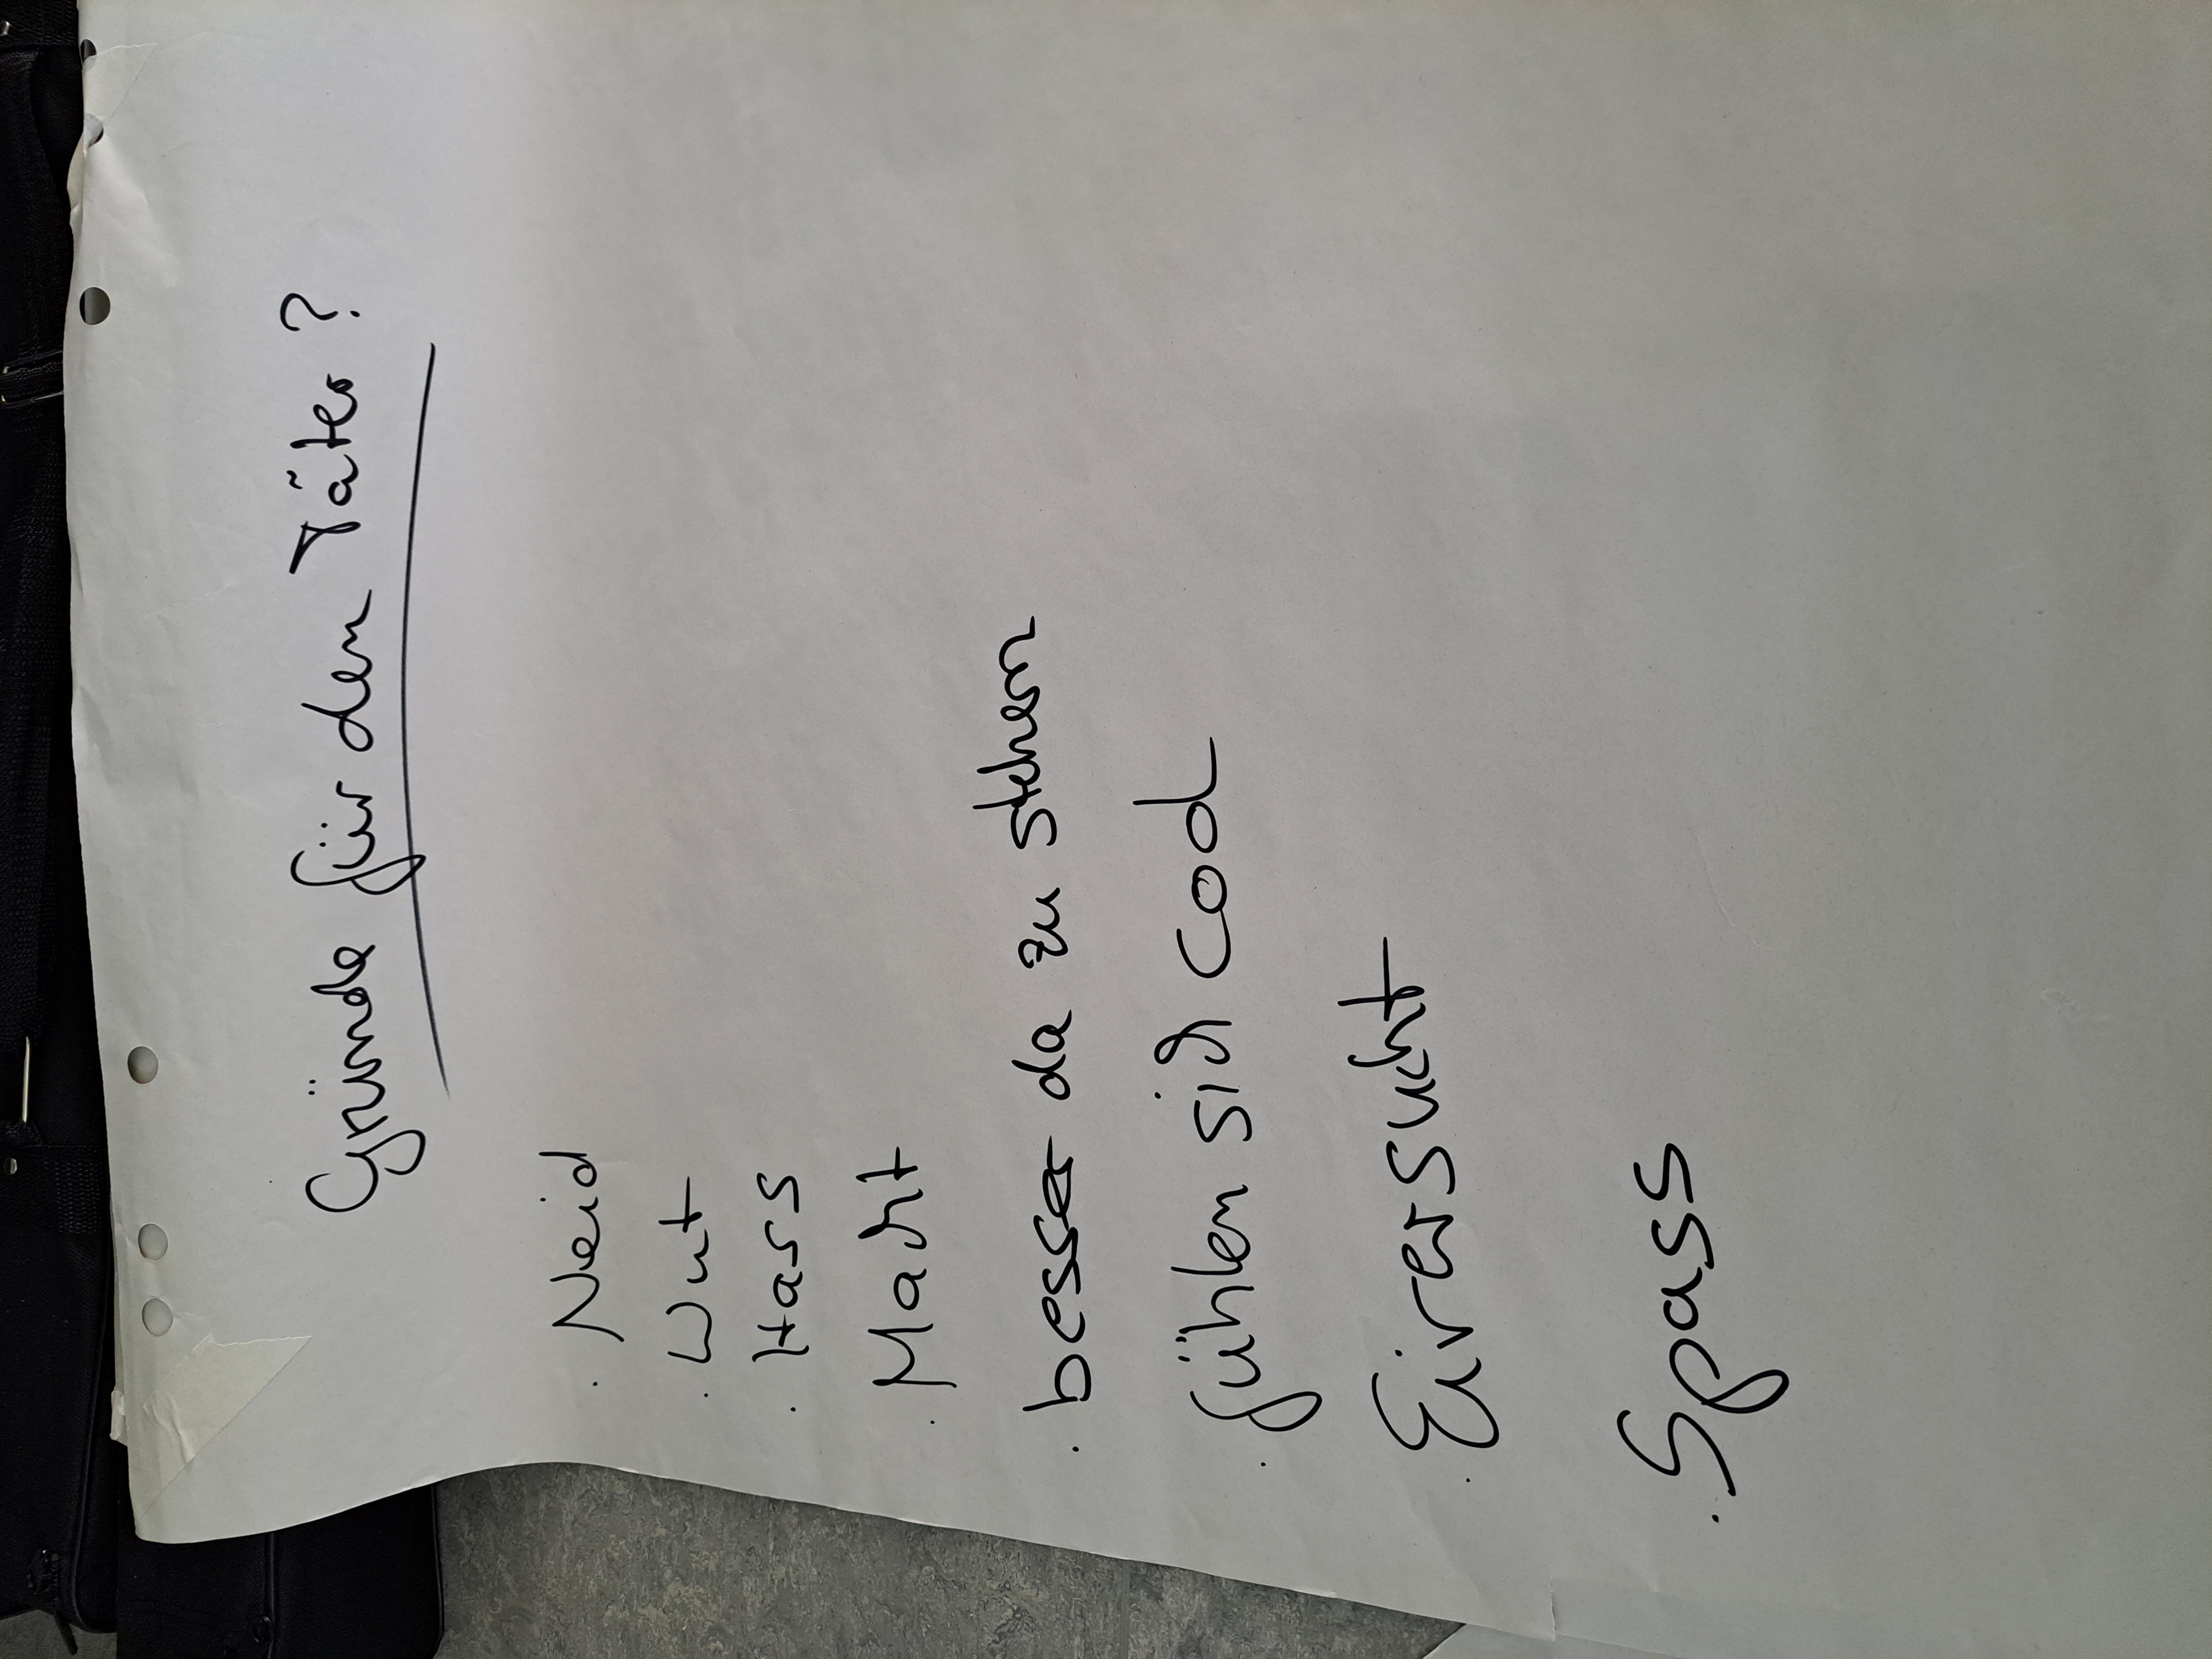 Gründe für den Täter?
· Neid
· Wut
· Hass
· Macht
· besser da zu stehen
· fühlen sich cool
· Eifersucht
· Spass